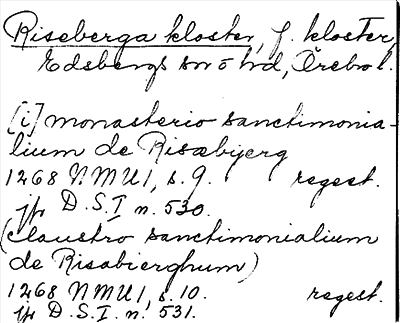 Riseberga kloster, f. kloster,
Edsbergs sn o hd, Örebro l.
[i] monasterio sanctimonia-
lium de Risæbijerg
1268 NMU1, s. 9. regest.
jfr D.S.I n. 530.
(claustro sanctimonialium
de Risabierghum)
1268 NMU1, s. 10. regest.
jfr D.S.I n. 531.